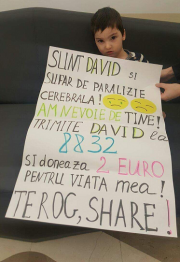 SUNT DAVID si
SUFAR DE PARALIZIE
CEREBRALA!
AM NEVOIE DE TINE!
TRIMITE DAVID la
8832
si doneaza 2 EURO
PENTRU VIATA mea!
TE ROG, SHARE!